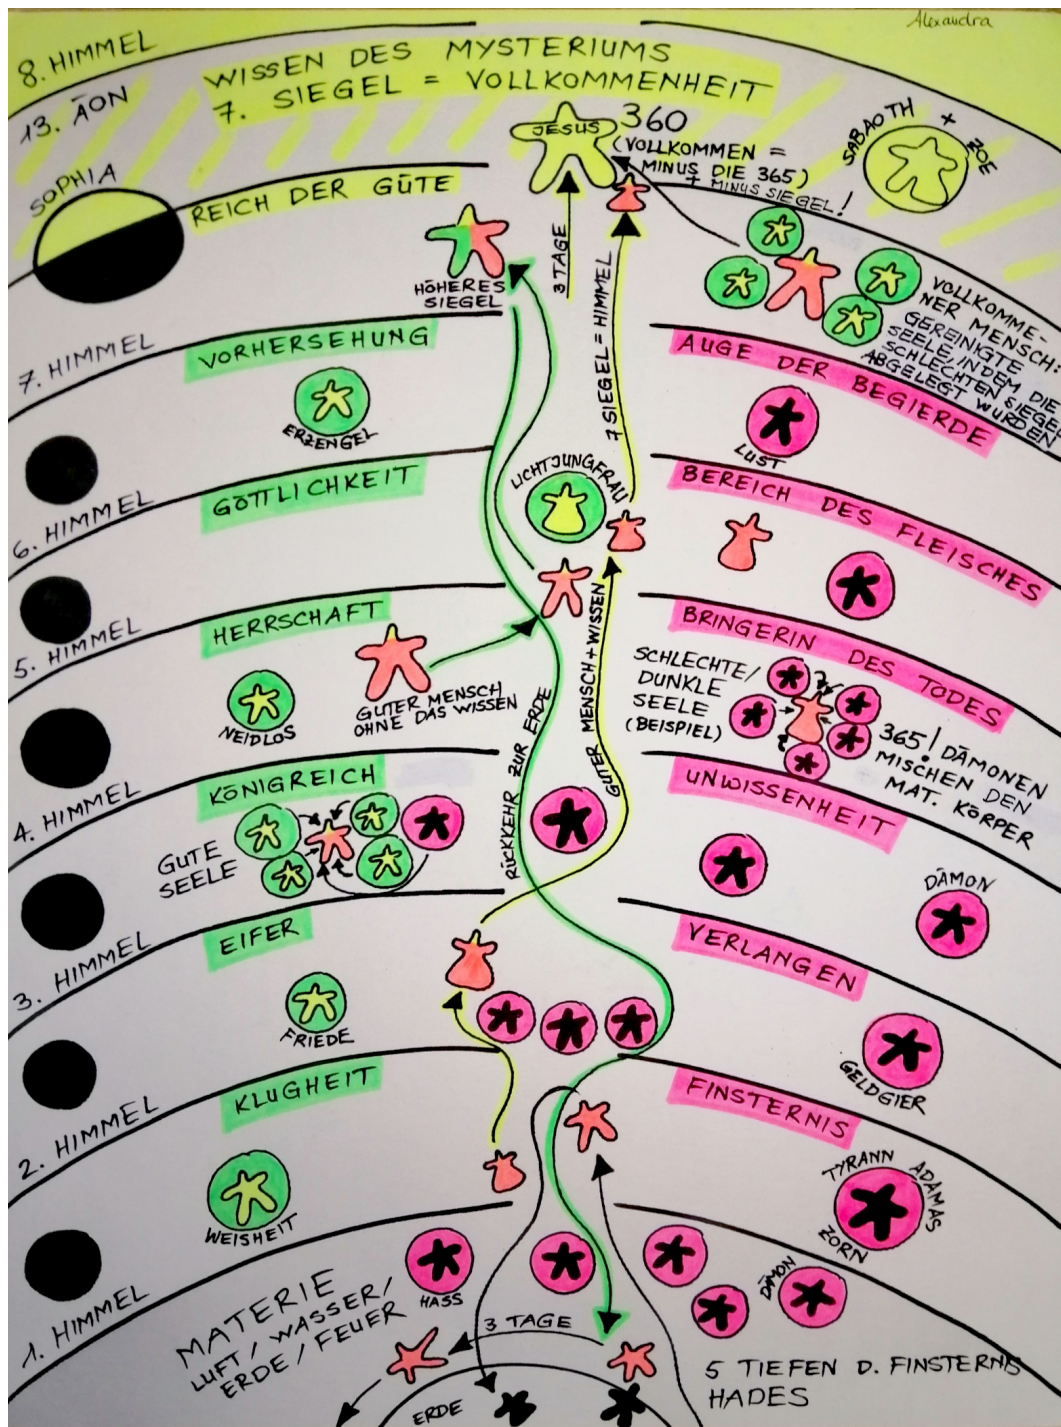 Alexandra
8. HIMMEL
WISSEN DES MYSTERIUMS
7. SIEGEL = VOLLKOMMENHEIT
13. ÄON
JESUS
360
(VOLLKOMMEN =
MINUS DIE 365)
+ MINUS SIEGEL!
SABAOTH + ZOE
SOPHIA
REICH DER GÜTE
HÖHERES
SIEGEL
3 TAGE
7 SIEGEL = HIMMEL
VOLLKOMME-
NER MENSCH:
GEREINIGTE
SEELE, INDEM DIE
SCHLECHTEN SIEGEL
ABGELEGT WURDEN
7. HIMMEL
VORHERSEHUNG
ERZENGEL
AUGE DER BEGIERDE
LUST
6. HIMMEL
GÖTTLICHKEIT
LICHTJUNGFRAU
BEREICH DES FLEISCHES
5. HIMMEL
HERRSCHAFT
NEIDLOS
GUTER MENSCH
OHNE DAS WISSEN
RÜCKKEHR ZUR ERDE
GUTER MENSCH + WISSEN
BRINGERIN DES TODES
SCHLECHTE/
DUNKLE
SEELE
(BEISPIEL)
365! DÄMONEN
MISCHEN DEN
MAT. KÖRPER
4. HIMMEL
KÖNIGREICH
GUTE
SEELE
UNWISSENHEIT
DÄMON
3. HIMMEL
EIFER
FRIEDE
VERLANGEN
GELDGIER
2. HIMMEL
KLUGHEIT
WEISHEIT
FINSTERNIS
TYRANN ADAMAS
ZORN
1. HIMMEL
MATERIE
LUFT/WASSER/
ERDE/FEUER
HASS
DÄMON
3 TAGE
ERDE
5 TIEFEN D. FINSTERNIS
HADES